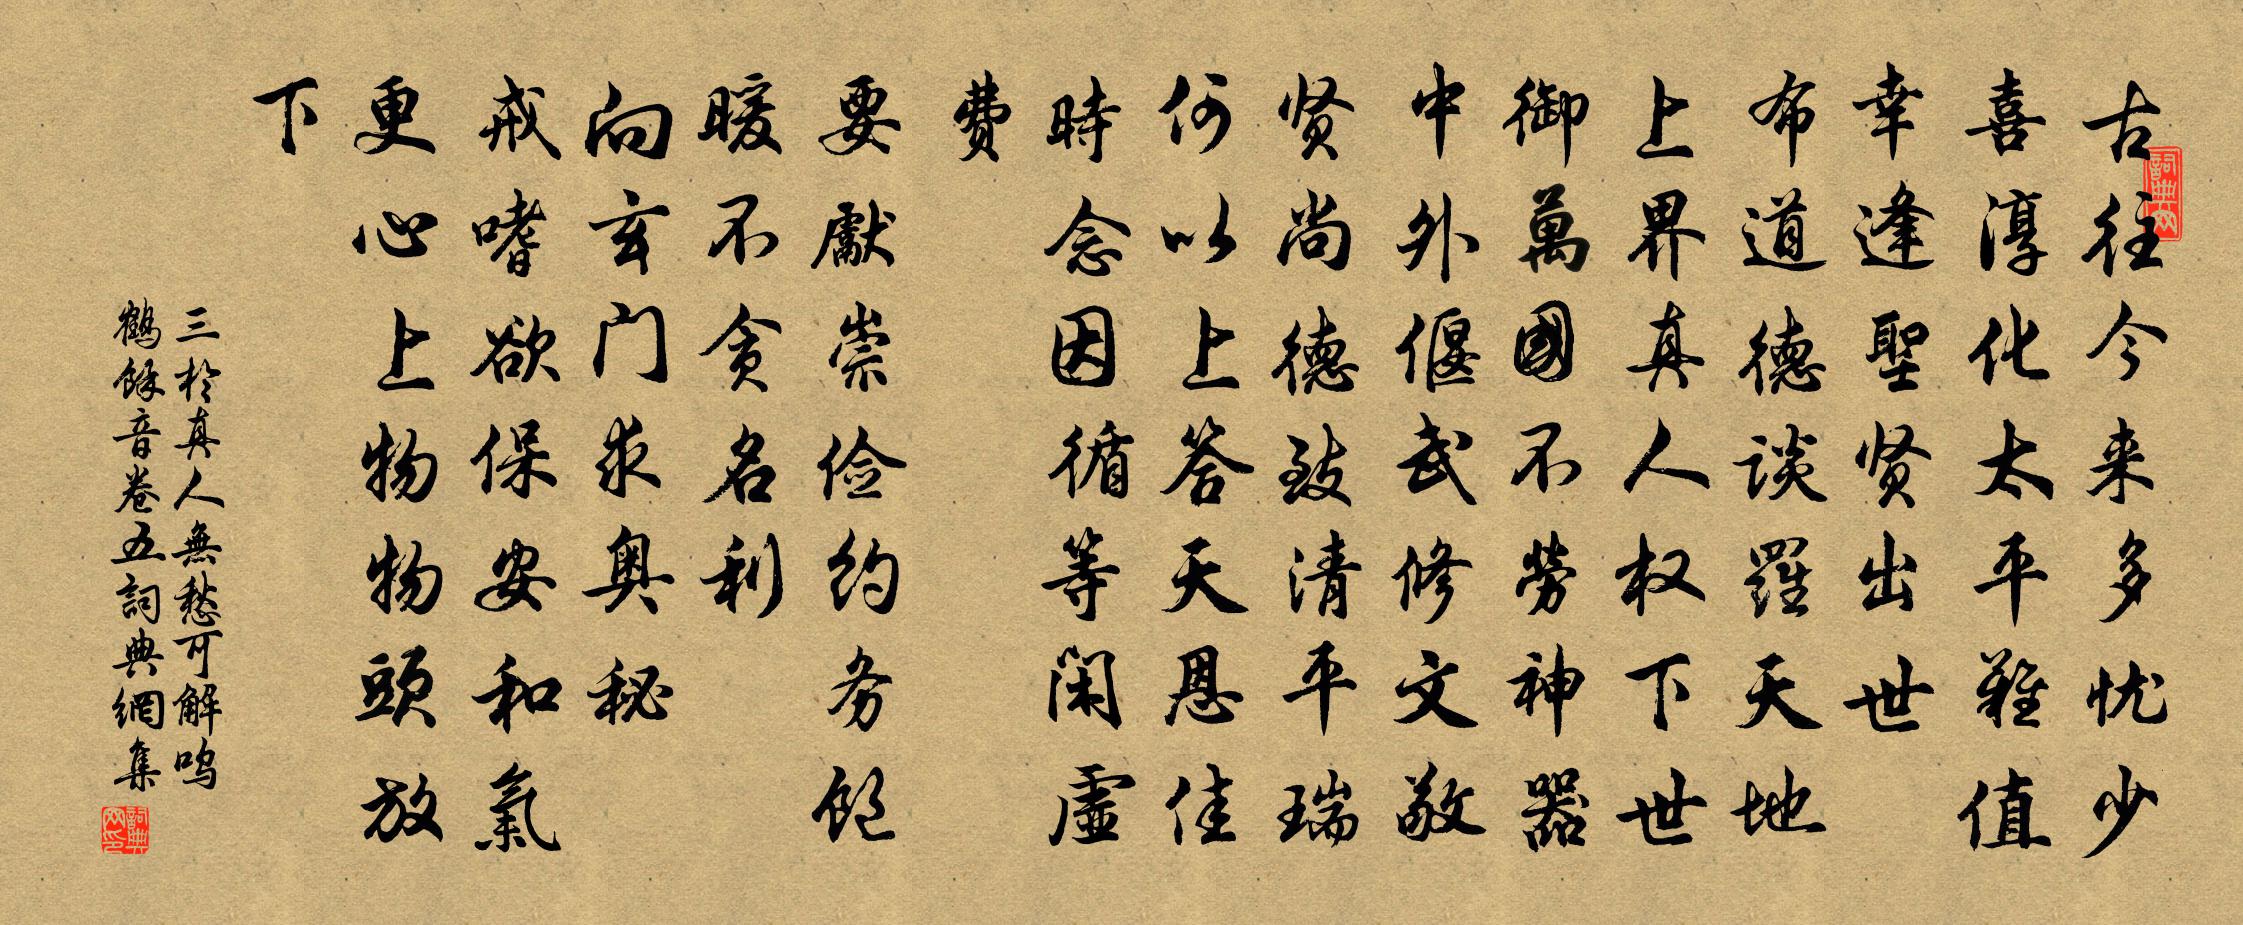 古往今来多忧少
喜淳化太平難值
幸逢聖贤出世
布道德谈羅天地
上界真人权下世
御萬國不勞神器
中外偃武修文敬
贤尚德致清平瑞
何以上答天恩佳
時念因循等闲虚
費
要獻崇俭约务飽
暖不贪名利
向玄门求奥秘
戒嗜欲保安和氣
更心上物物頭放
下
三於真人無愁可解鸣
鶴餘音卷五詞典網集
詞典网
詞典网印